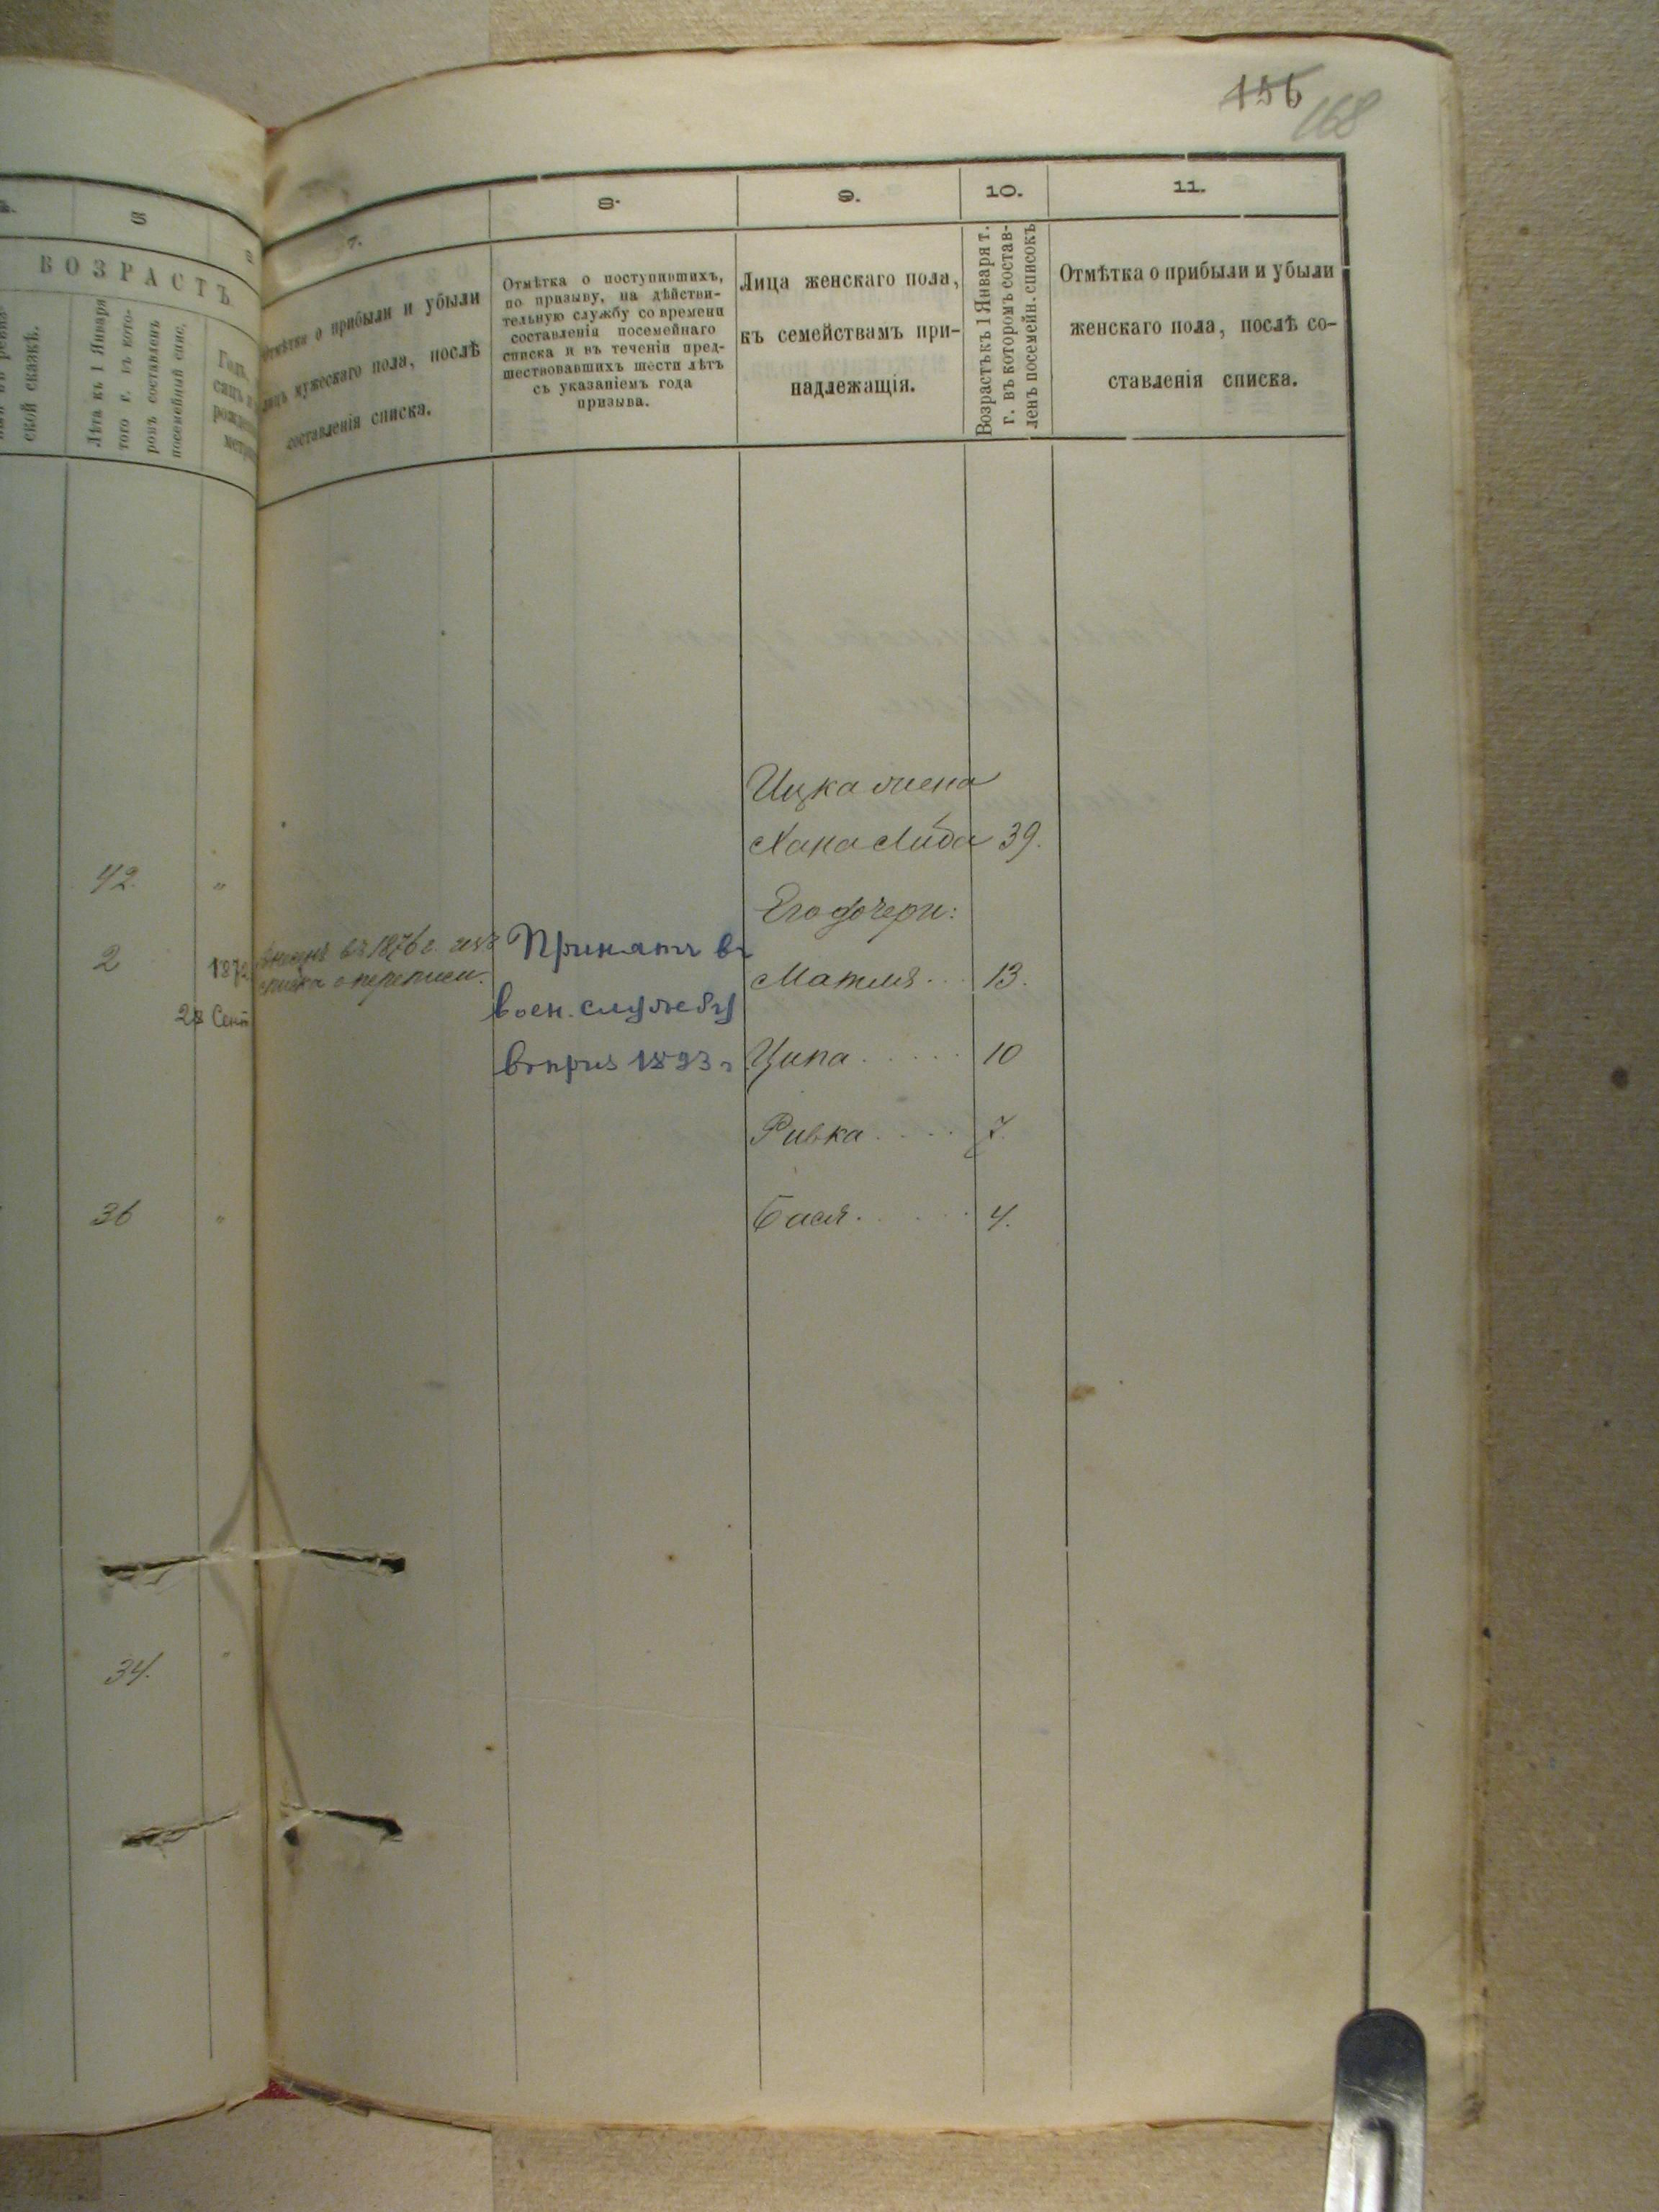 156
168
5
7.
8.
9.
10.
11.
ВОЗРАСТЪ
ской сказкѣ.
Лѣта къ 1 Января
того г. въ кото-
ромъ составленъ
посемейный спис.
Отмѣтка о прибыли и убыли
лицъ мужескаго пола, послѣ
составленія списка.
Отмѣтка о поступившихъ,
по призыву, на дѣйстви-
тельную службу со времени
составленія посемейнаго
списка и въ теченіи пред-
шествовавшихъ шести лѣтъ
съ указаніемъ года
призыва.
Лица женскаго пола,
къ семействамъ при-
надлежащія.
Возрастъ къ 1 Января т.
г. въ которомъ состав-
ленъ посемейн. списокъ
Отмѣтка о прибыли и убыли
женскаго пола, послѣ со-
ставленія списка.
Ицка жена
Хана Либа 39.
42. "
Его дочери:
2 1872
28 Сент
въ 1876 г. изъ
списка о переписи.
Принятъ въ
воен. службу
въ приз 1893 г
Матля 13.
Ципа 10
Ривка 7.
36 "
Бася 4.
34. "